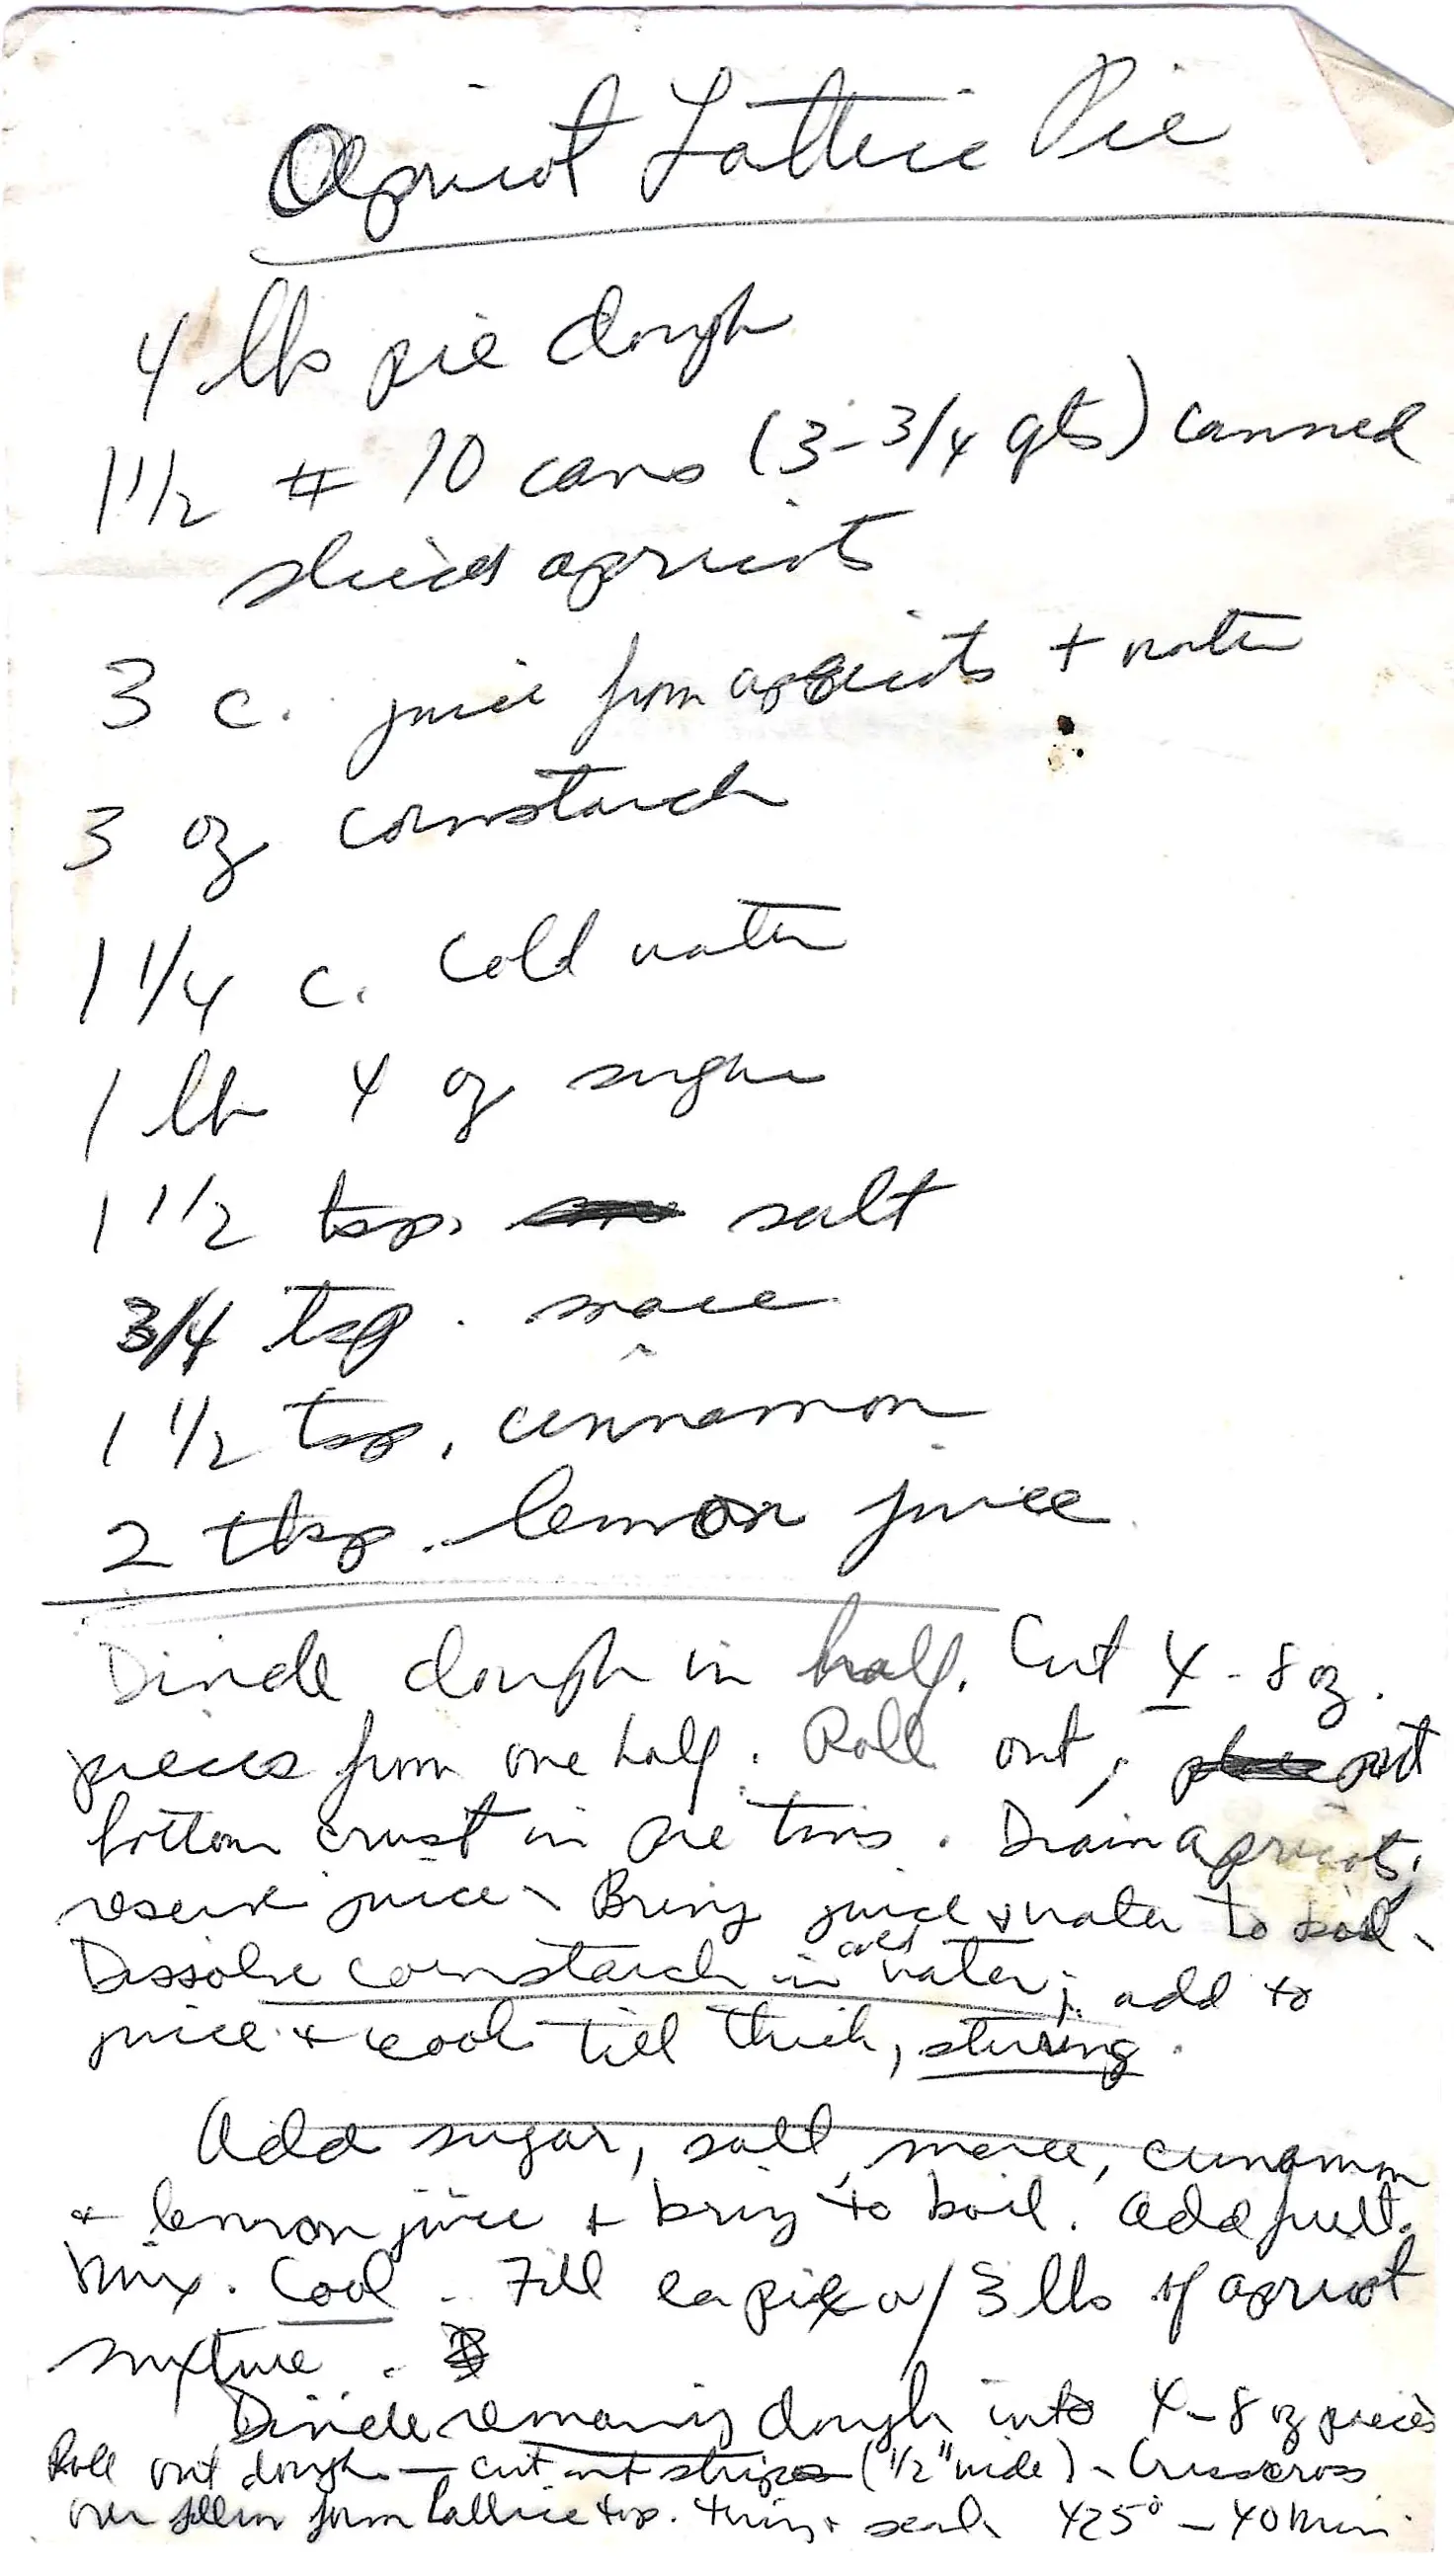 Apricot Lattice Pie
4 lbs pie dough
1 1/2 # 10 cans (3-3/4 qts) canned
sliced apricots
3 c. juice from apricots + water
3 oz cornstarch
1 1/4 c. cold water
1 lb 4 oz sugar
1 1/2 tsp. salt
3/4 tsp. mace
1 1/2 tsp. cinnamon
2 tbsp. lemon juice
Divide dough in half. Cut 4 - 8 oz.
pieces from one half. Roll out, put
bottom crust in pie tins. Drain apricots,
reserve juice. Bring juice & water to boil.
Dissolve cornstarch in cold water; add to
juice & cook till thick, stirring.
Add sugar, salt, mace, cinnamon
& lemon juice & bring to boil. Add fruit.
Mix. Cool. Fill ea pie w/ 3 lbs of apricot
mixture.
Divide remaining dough into 4 - 8 oz pieces
Roll out dough — cut into strips (1/2" wide). Crisscross
over form lattice top. Trim & seal. 425° - 40 min.